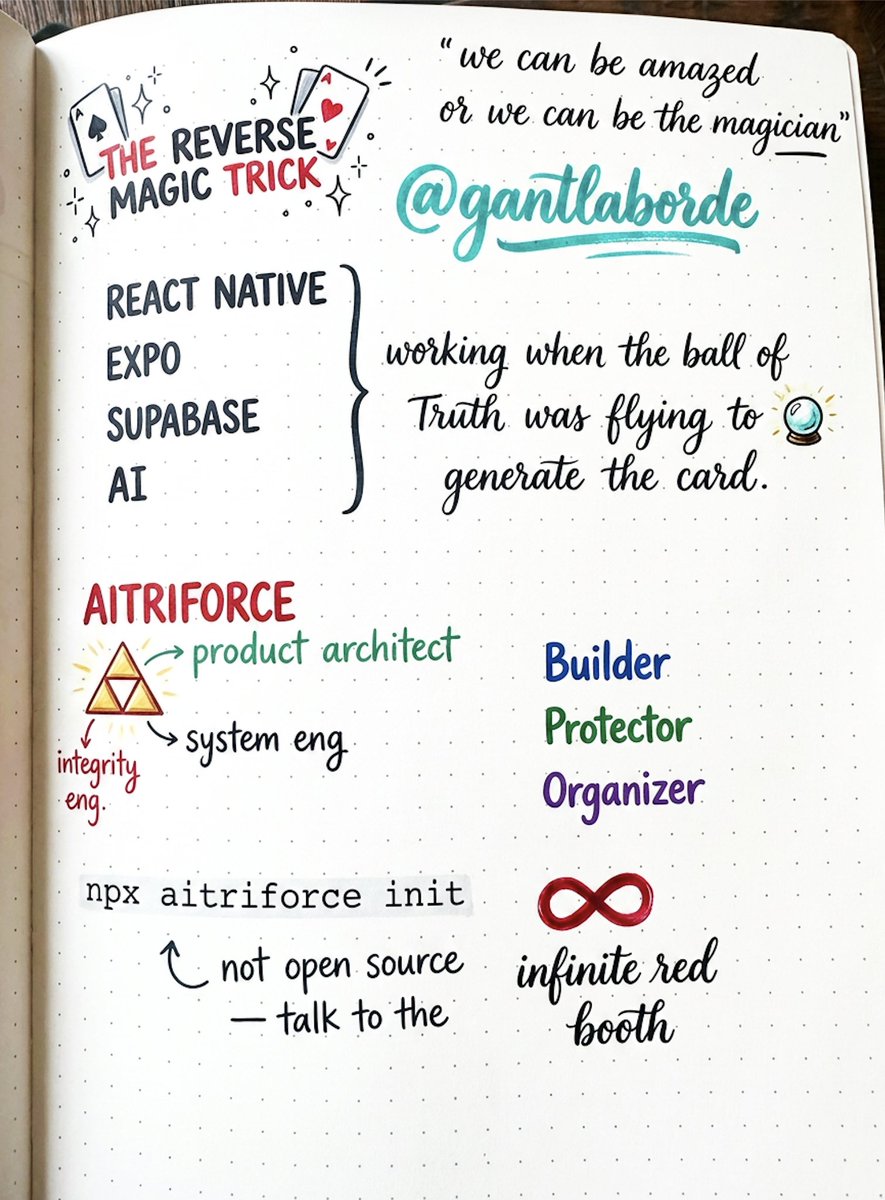 THE REVERSE
MAGIC TRICK
"we can be amazed
or we can be the magician"
@gantlaborde
REACT NATIVE
EXPO
SUPABASE
AI
working when the ball of
Truth was flying to
generate the card.
AITRIFORCE
product architect
system eng
integrity
eng.
Builder
Protector
Organizer
npx aitriforce init
not open source
— talk to the
infinite red
booth